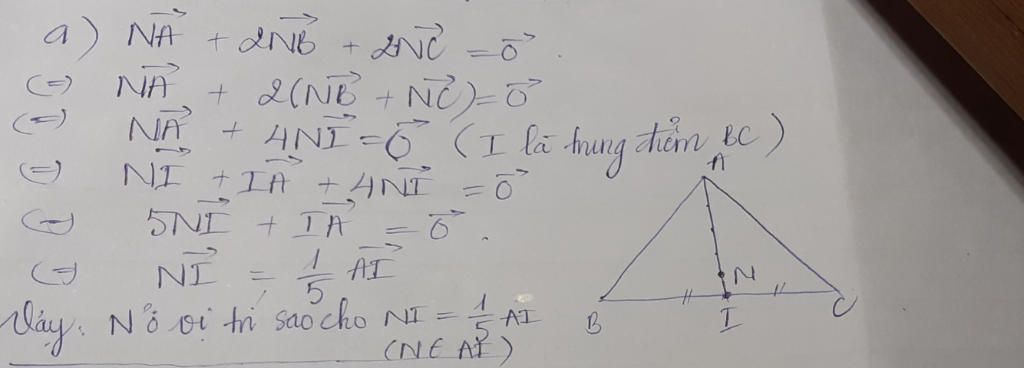 a) NA→ + 2NB→ + 2NC→ = 0→.
(=) NA→ + 2(NB→ + NC→) = 0→
(=) NA→ + 4NI→ = 0→ (I là trung điểm BC)
(=) NI→ + IA→ + 4NI→ = 0→
(=) 5NI→ + IA→ = 0→.
(=) NI→ = 1/5 AI→
Vậy: N ở vị trí sao cho NI = 1/5 AI
(N ∈ AI)
A
N
B
I
C